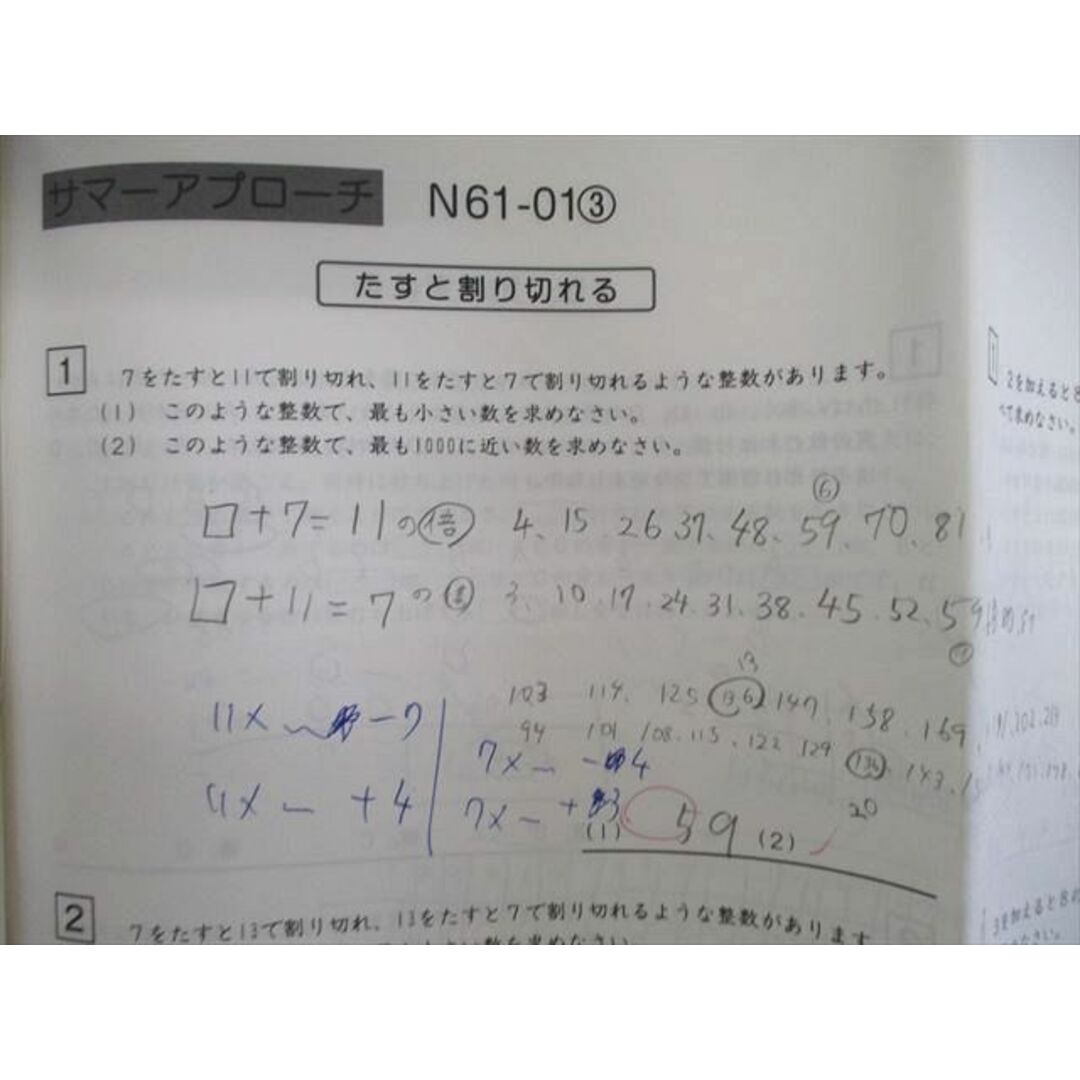 サマーアプローチ N61-01③
たすと割り切れる
1 7をたすと11で割り切れ、11をたすと7で割り切れるような整数があります。
(1) このような整数で、最も小さい数を求めなさい。
(2) このような整数で、最も1000に近い数を求めなさい。
□+7=11の倍 4、15 26 37、48、59、70、81
⑥
□+11=7の倍 3、10、17、24、31、38、45、52、59
11× -7
103 114、125 136 147、158、169
13
94 101 108、115、122 129 136、143
7× - -4
11× - +4
7× - +3
20
(1) 59 (2)
2 7をたすと13で割り切れ、13をたすと7で割り切れるような整数があります
数を求めなさい。
2を加えると8
べて求めなさい。
3を加えると8の